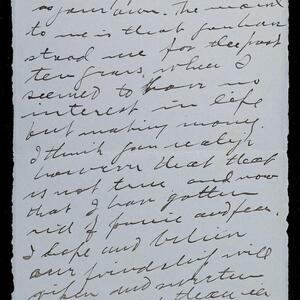 as your own. The marvel
to me is that you have
stood me for the past
ten years, when I
seemed to have no
interest in life
but making money.
I think you realize
however that that
is not true and now
that I have gotten
rid of panic and fear.
I hope and believe
our friendship will
ripen and sweeten